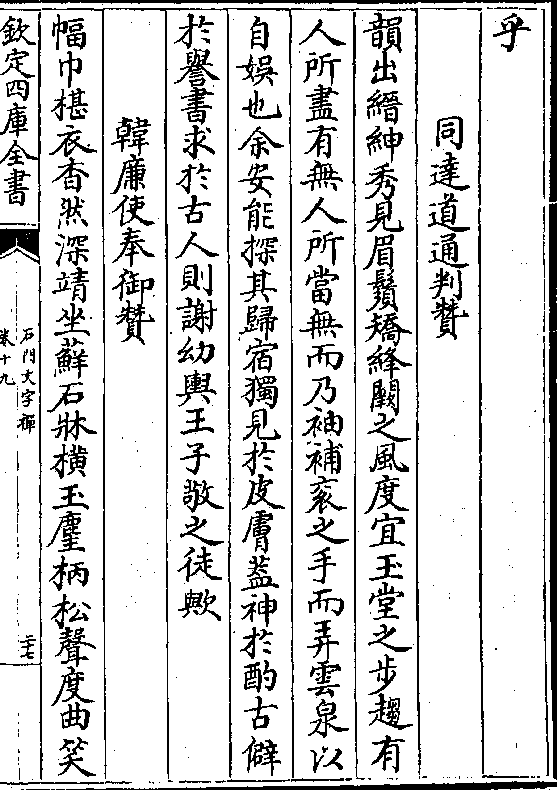 乎
同達道通判贊
韻出縉紳秀見眉鬚矯絳闕之風度宜玉堂之步趨有
人所盡有無人所當無而乃袖補袞之手而弄雲泉以
自娛也余安能探其歸宿獨見於皮膚蓋神於酌古僻
於譽書求於古人則謝幼輿王子敬之徒歟
韓廉使奉御贊
幅巾椹衣杳然深靖坐蘚石牀橫玉麈柄松聲度曲笑
欽定四庫全書
石門文字禪
卷十九
二十七